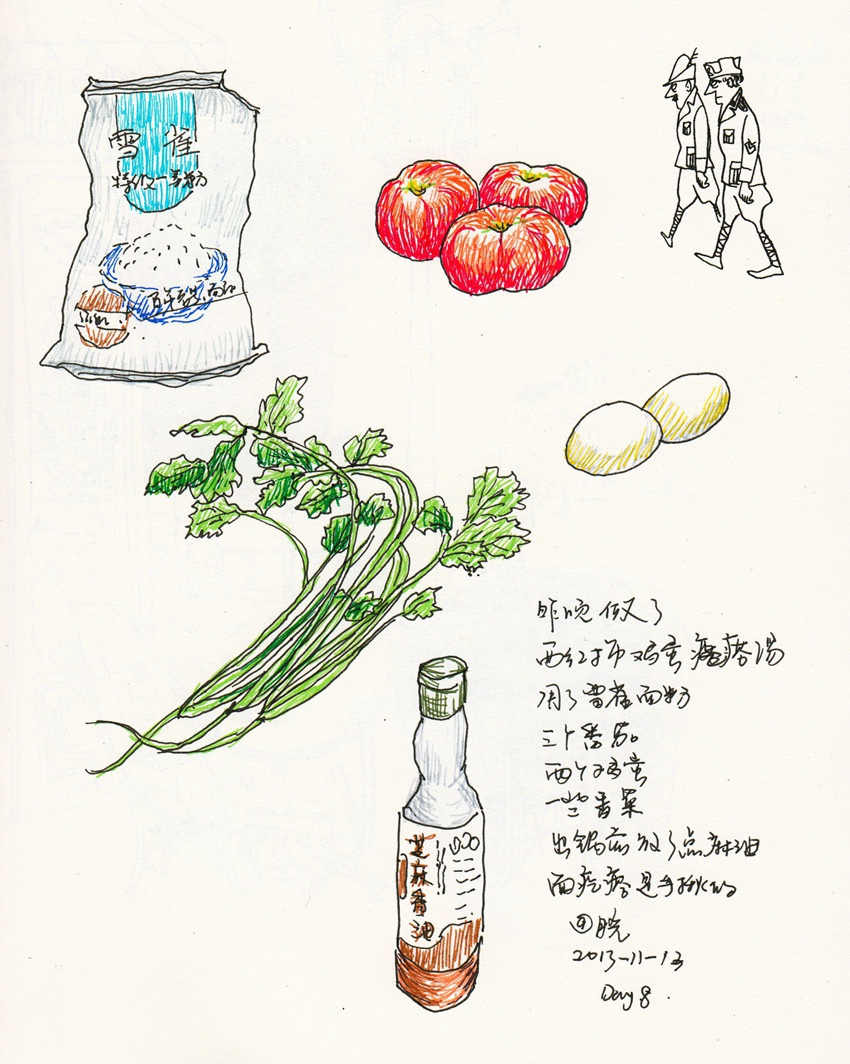 雪雀
一等粉
芝麻香油
昨晚做了
西红柿鸡蛋疙瘩汤
用了雪雀面粉
三个番茄
两个鸡蛋
一些香菜
出锅前放了点麻油
面疙瘩是手揪的
2013-11-13
Day 8.